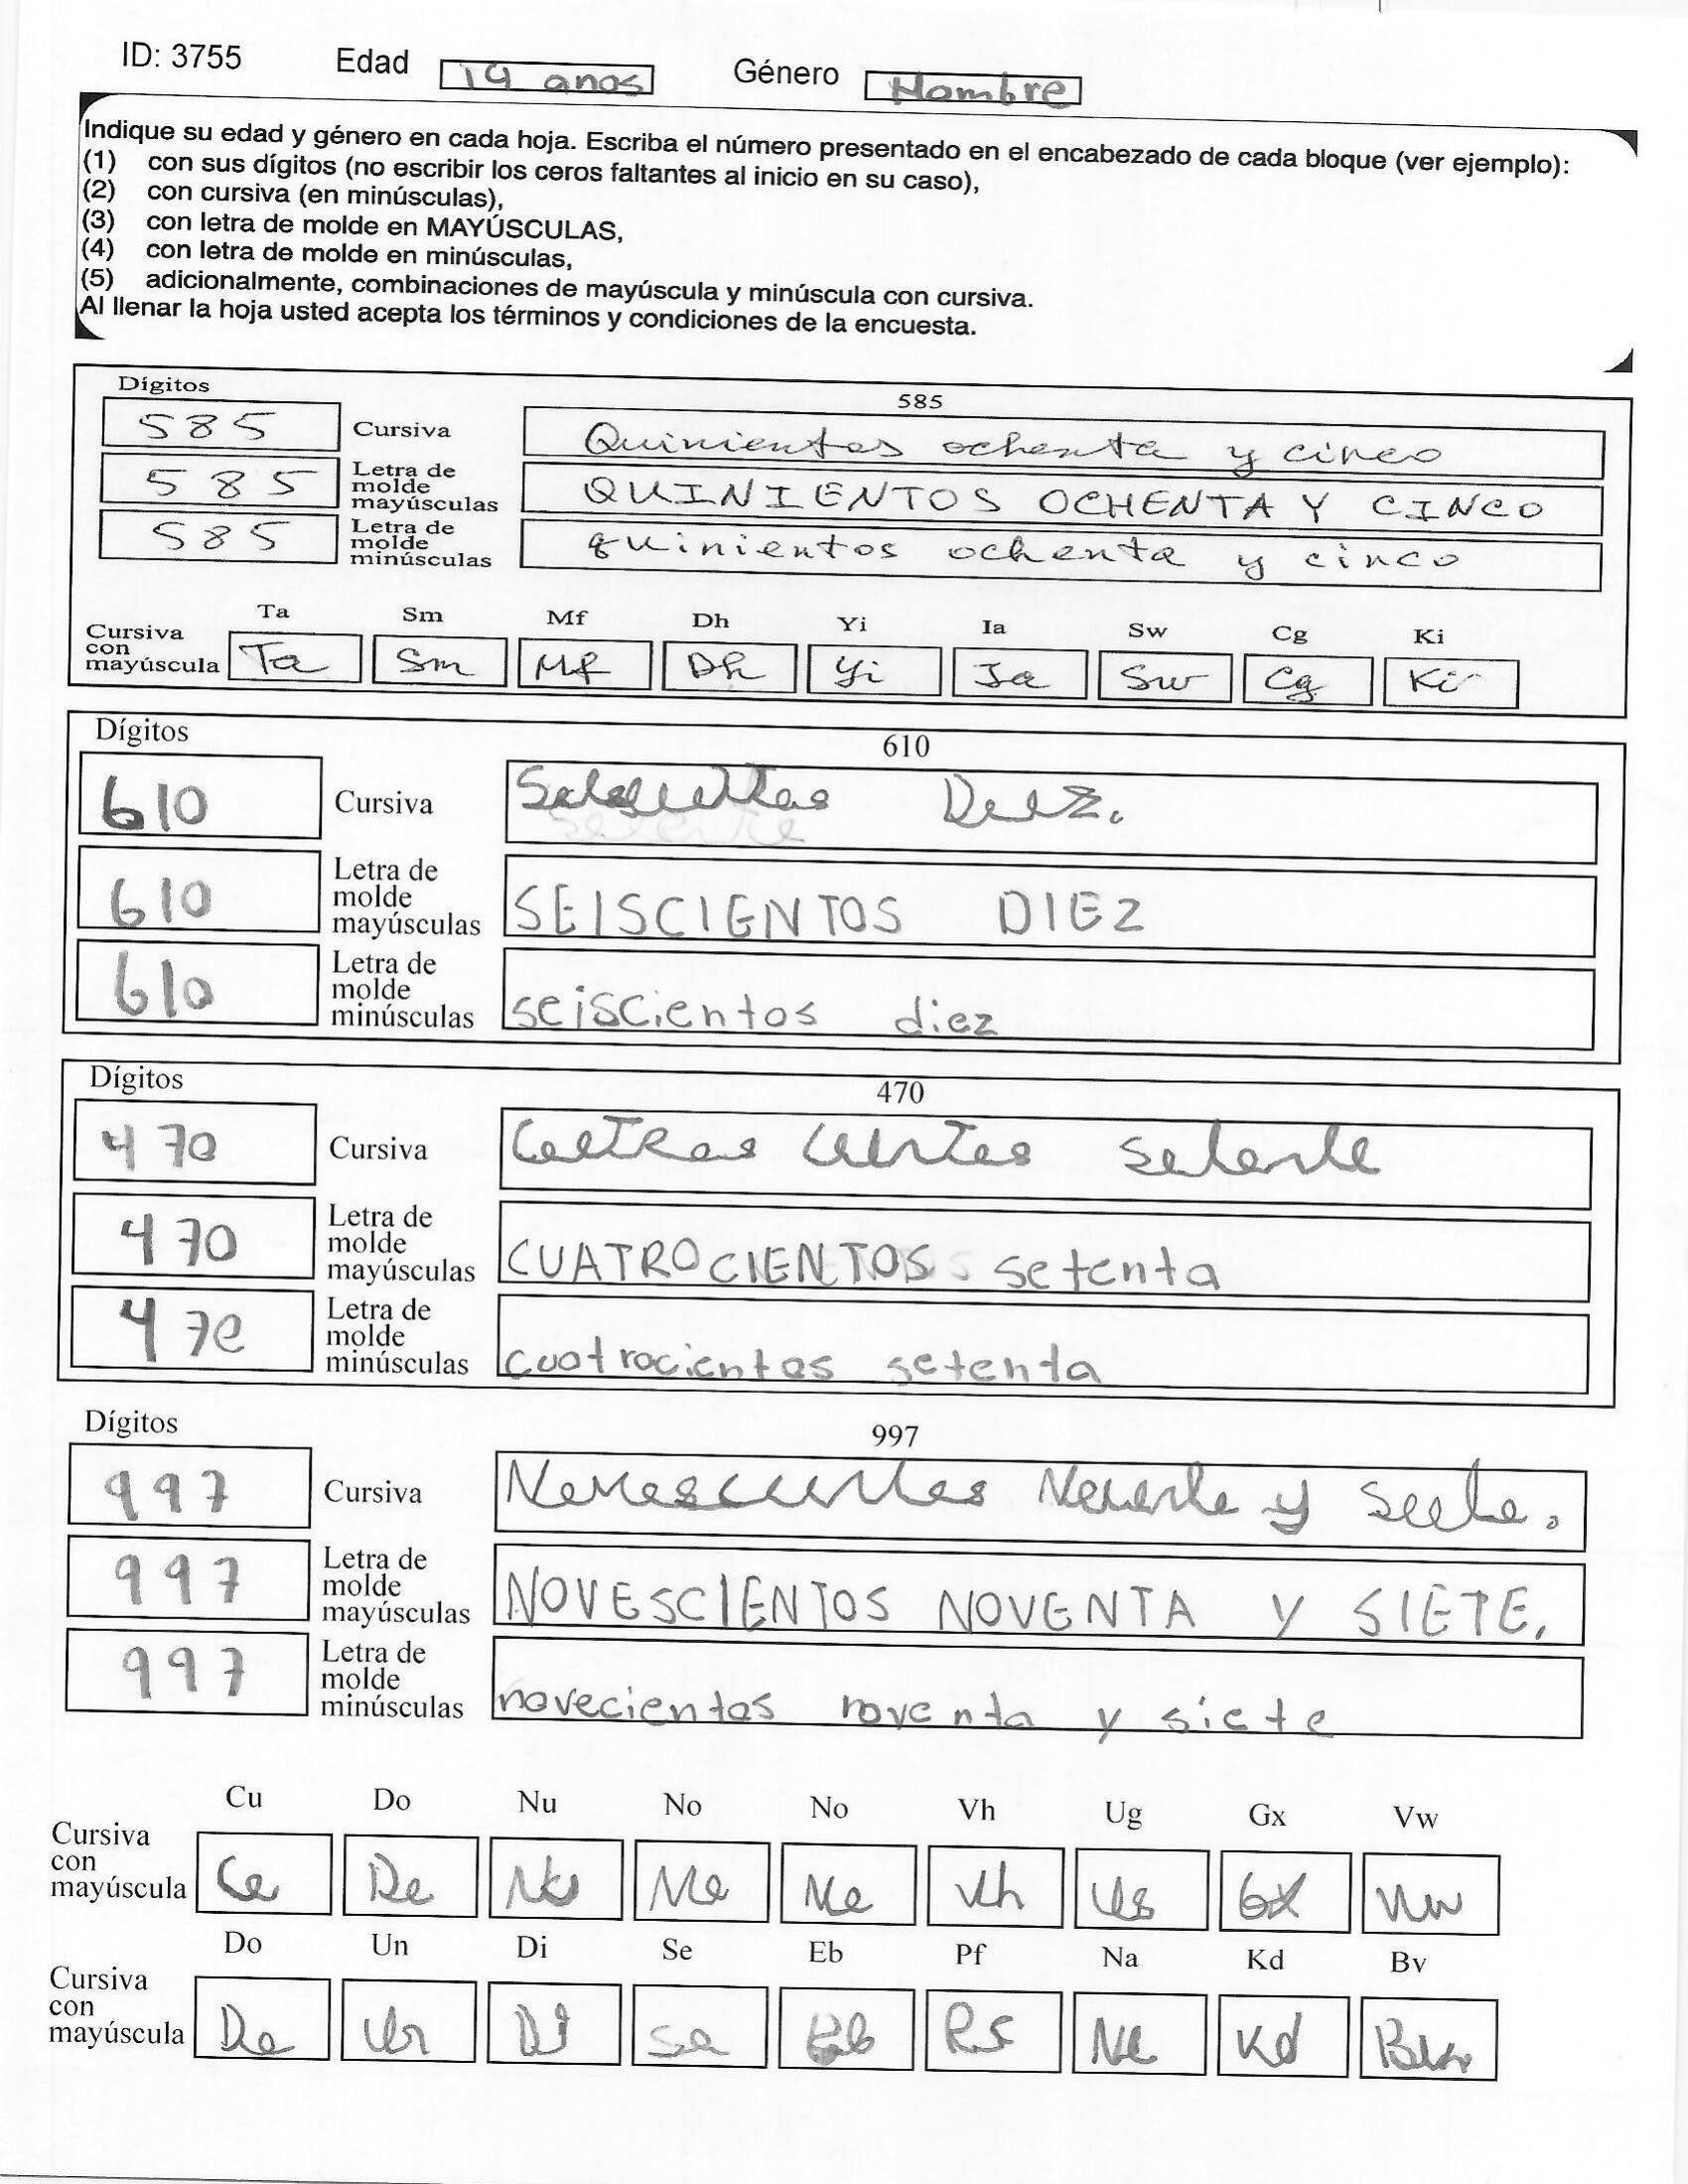 ID: 3755 Edad 14 anos Género Hombre
Indique su edad y género en cada hoja. Escriba el número presentado en el encabezado de cada bloque (ver ejemplo):
(1) con sus dígitos (no escribir los ceros faltantes al inicio en su caso),
(2) con cursiva (en minúsculas),
(3) con letra de molde en MAYÚSCULAS,
(4) con letra de molde en minúsculas,
(5) adicionalmente, combinaciones de mayúscula y minúscula con cursiva.
Al llenar la hoja usted acepta los términos y condiciones de la encuesta.
Dígitos 585
585 Cursiva Quinientos ochenta y cinco
585 Letra de molde mayúsculas QUINIENTOS OCHENTA Y CINCO
585 Letra de molde minúsculas quinientos ochenta y cinco
Ta Sm Mf Dh Yi Ia Sw Cg Ki
Cursiva con mayúscula Ta Sm Mf Dh Yi Ia Sw Cg Ki
Dígitos 610
610 Cursiva
610 Letra de molde mayúsculas SEISCIENTOS DIEZ
610 Letra de molde minúsculas seiscientos diez
Dígitos 470
470 Cursiva
470 Letra de molde mayúsculas CUATROCIENTOS setenta
470 Letra de molde minúsculas cuatrocientos setenta
Dígitos 997
997 Cursiva y
997 Letra de molde mayúsculas NOVESCIENTOS NOVENTA Y SIETE.
997 Letra de molde minúsculas novecientos noventa y siete
Cu Do Nu No No Vh Ug Gx Vw
Cursiva con mayúscula Vh Gx Vw
Do Un Di Se Eb Pf Na Kd Bv
Cursiva con mayúscula Un Di Se Eb Kd Bv